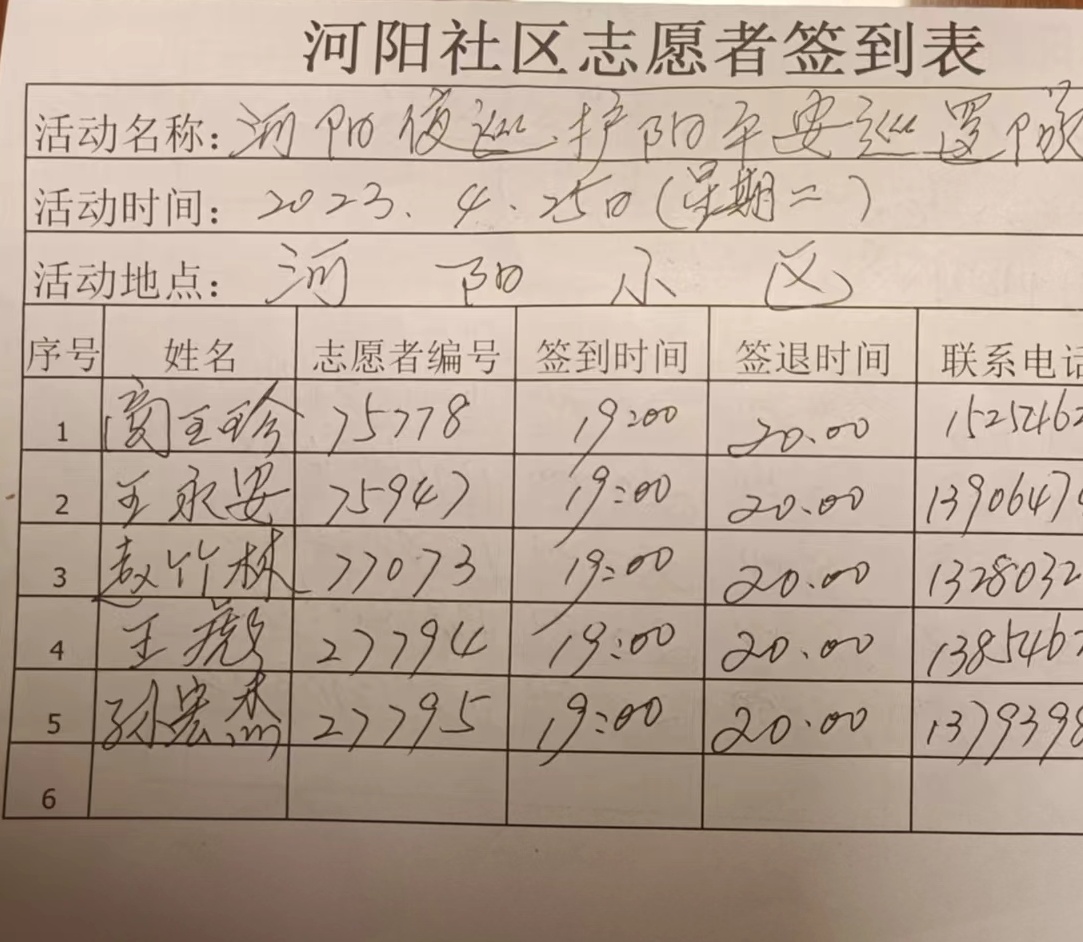 河阳社区志愿者签到表
活动名称：河阳夜巡.护阳平安巡逻队
活动时间：2023.4.25日(星期二)
活动地点：河阳小区
序号 姓名 志愿者编号 签到时间 签退时间 联系电话
1 75778 19:00 20.00 1525462
2 王永安 75947 19:00 20.00 1390647
3 赵竹林 77073 19:00 20.00 1328032
4 王彪 27794 19:00 20.00 138546
5 孙宏杰 27795 19:00 20.00 1379398
6